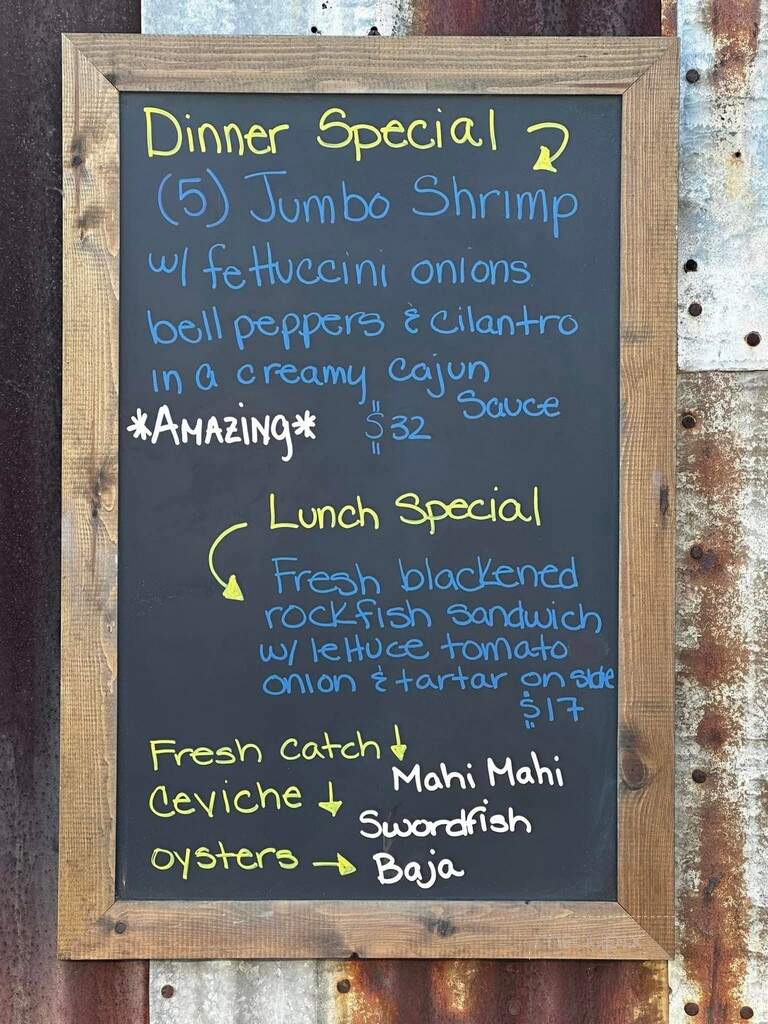 Dinner Special
(5) Jumbo Shrimp
w/ fettuccini onions
bell peppers & cilantro
in a creamy cajun
Sauce
*AMAZING* $32
Lunch Special
Fresh blackened
rockfish sandwich
w/ lettuce tomato
onion & tartar on side
$17
Fresh catch
Mahi Mahi
Ceviche
Swordfish
oysters → Baja